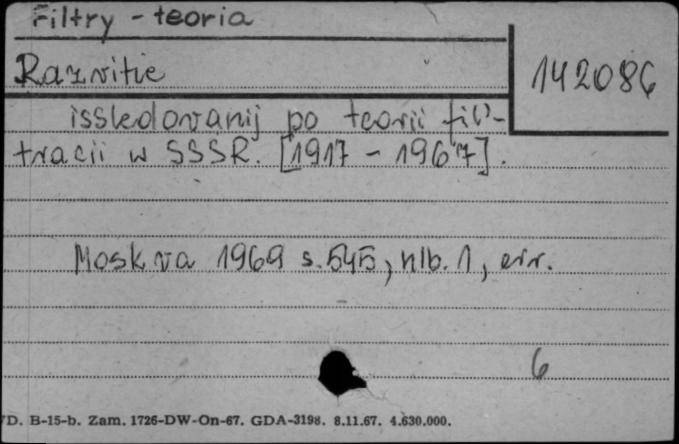 Filtry - teoria
Razvitie
142086
issledovanij po teorii fil'-
tracii w SSSR. [1917 - 1967].
Moskva 1969 s. 545, nlb. 1, err.
6
D. B-15-b. Zam. 1726-DW-On-67. GDA-3198. 8.11.67. 4.630.000.